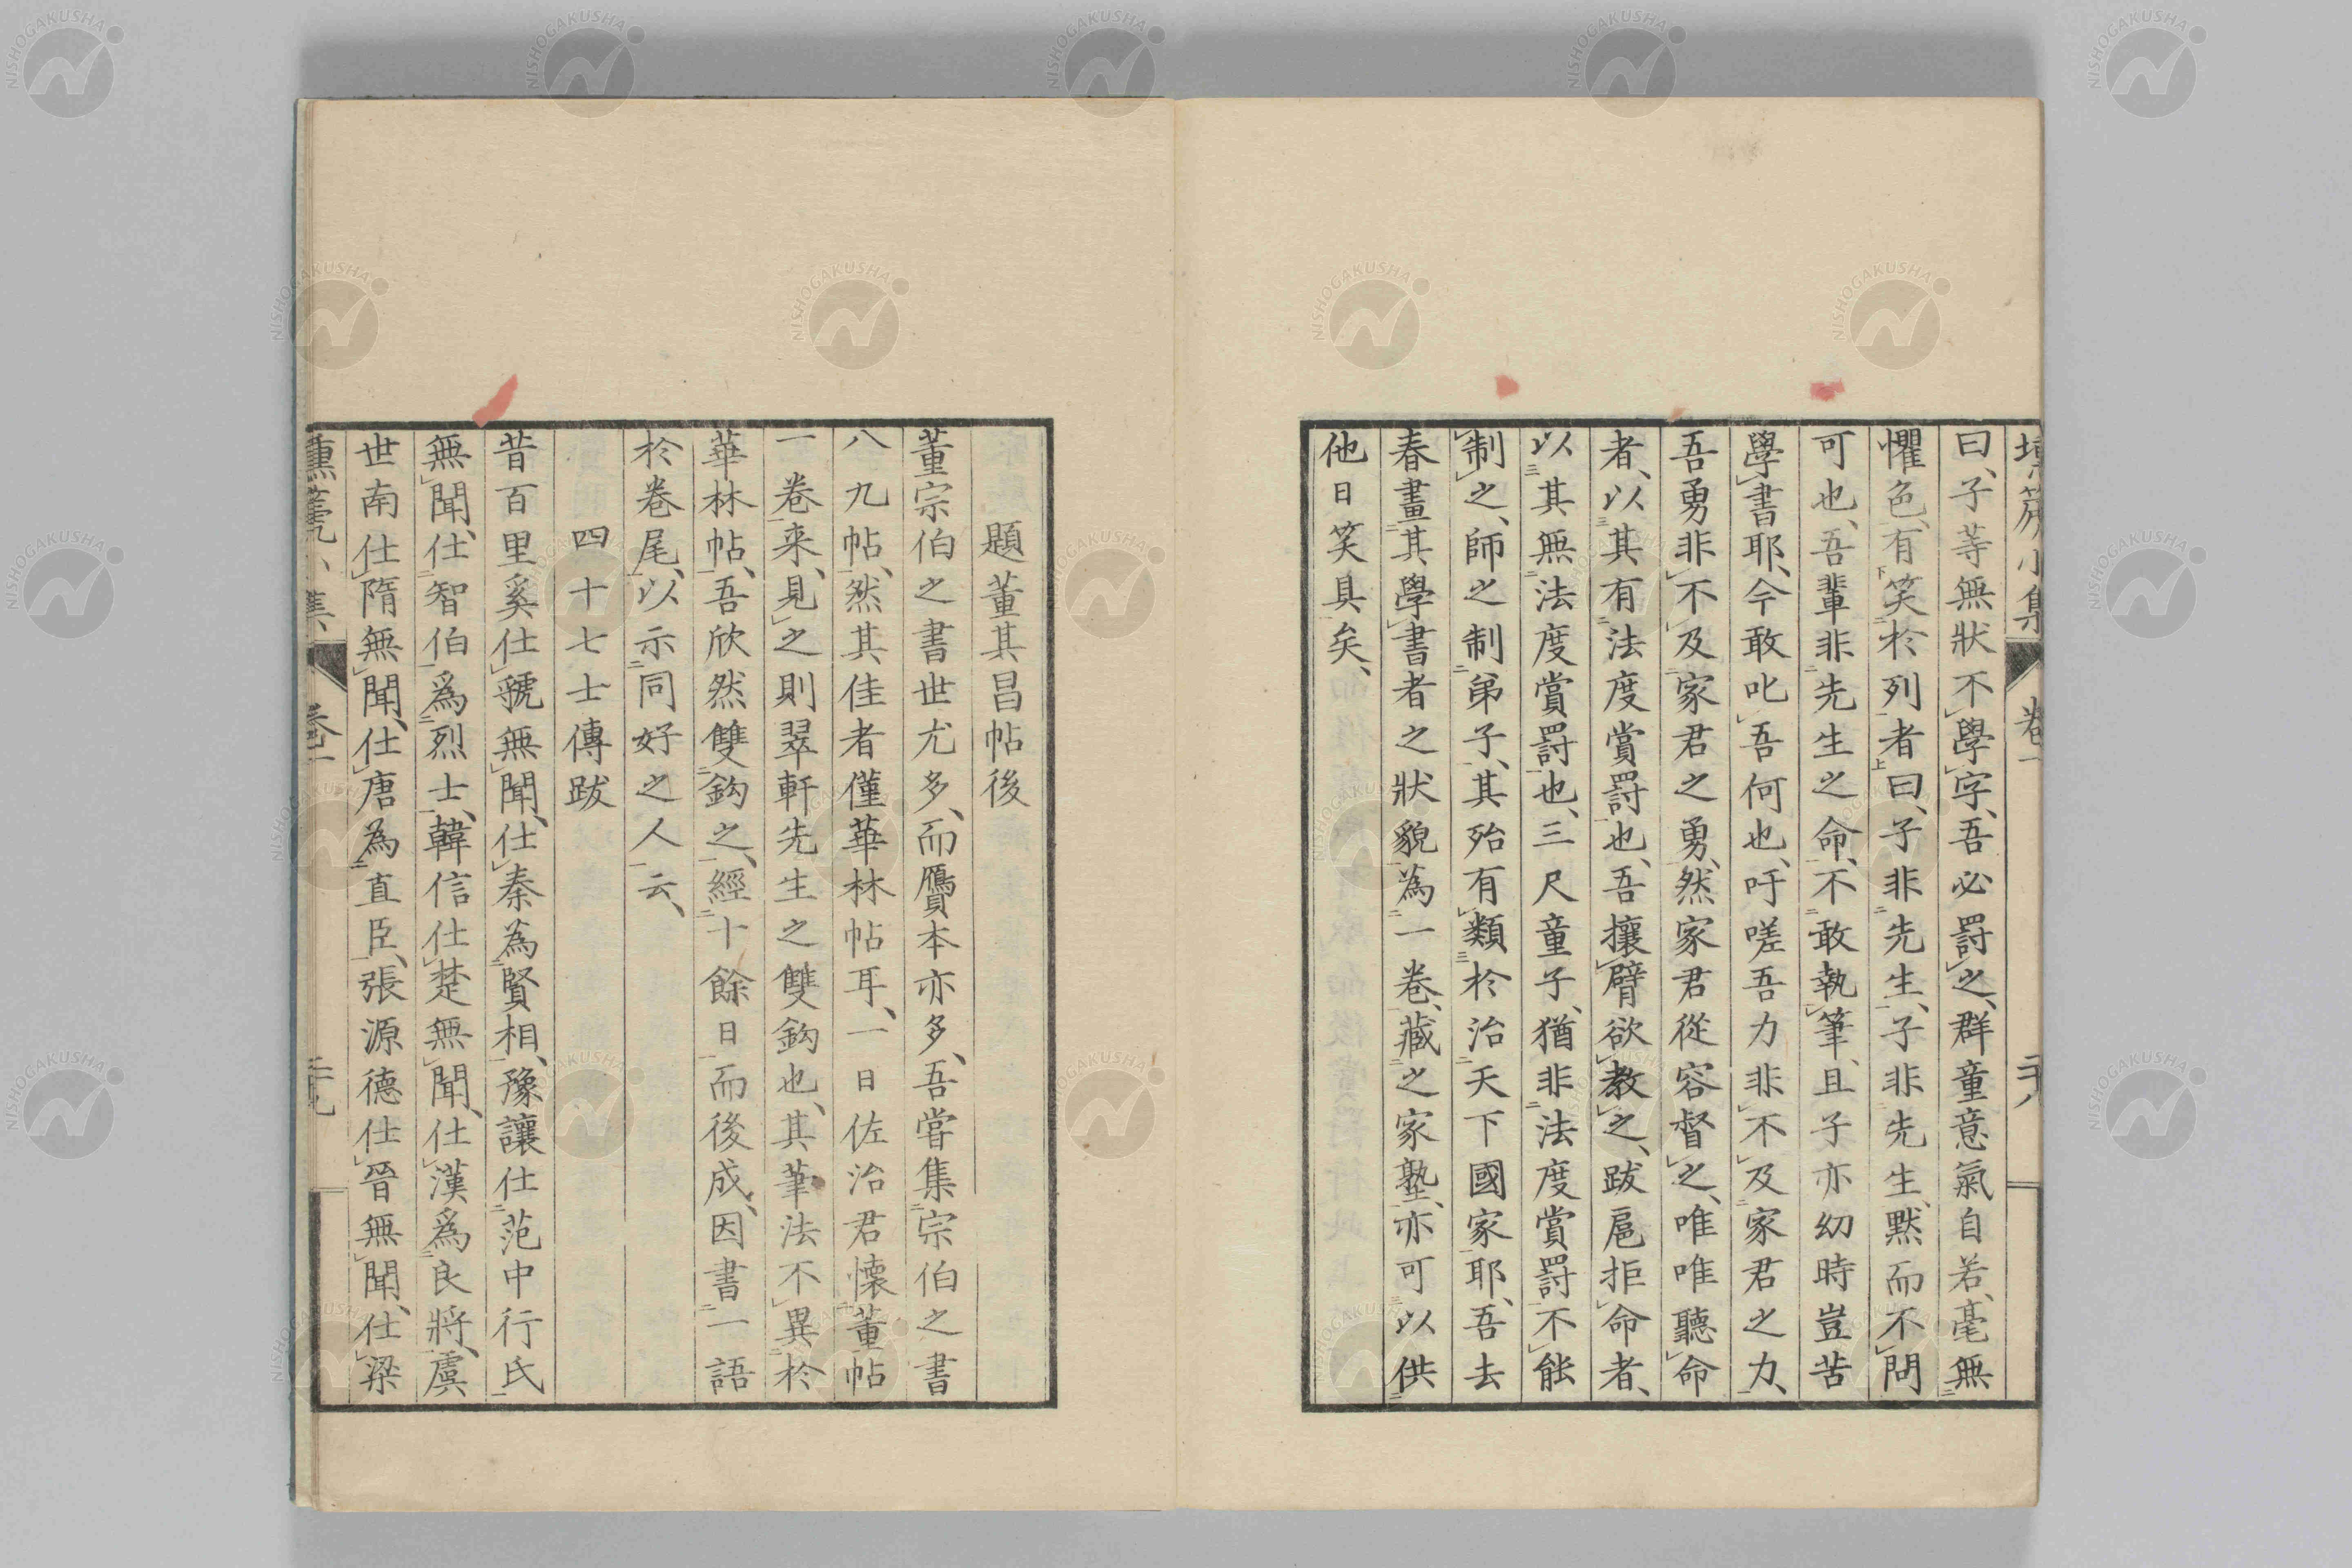 塤箎小集 卷一 二十八
曰、子等無狀不學字、吾必罰之、群童意氣自若、毫無
懼色、有笑於列者曰、子非先生、子非先生、默而不問
可也、吾輩非先生之命、不敢執筆、且子亦幼時豈苦
學書耶、今敢叱吾何也、吁嗟吾力非不及家君之力、
吾勇非不及家君之勇、然家君從容督之、唯唯聽命
者、以其有法度賞罰也、吾攘臂欲教之、跋扈拒命者、
以其無法度賞罰也、三尺童子、猶非法度賞罰不能
制之、師之制弟子、其殆有類於治天下國家耶、吾去
春畫其學書者之狀貌為一卷、藏之家塾、亦可以供
他日笑具矣、
題董其昌帖後
董宗伯之書世尤多、而鷹本亦多、吾嘗集宗伯之書
八九帖、然其佳者僅華林帖耳、一日佐治君懷董帖
一卷来、見之則翠軒先生之雙鈎也、其筆法不異於
華林帖、吾欣然雙鈎之、經十餘日而後成、因書一語
於卷尾、以示同好之人云、
四十七士傳跋
昔百里奚仕虢無聞、仕秦為賢相、豫讓仕范中行氏
無聞、仕智伯爲烈士、韓信仕楚無聞、仕漢爲良將、虞
世南仕隋無聞、仕唐為直臣、張源德仕晉無聞、仕梁
NISHOGAKUSHA